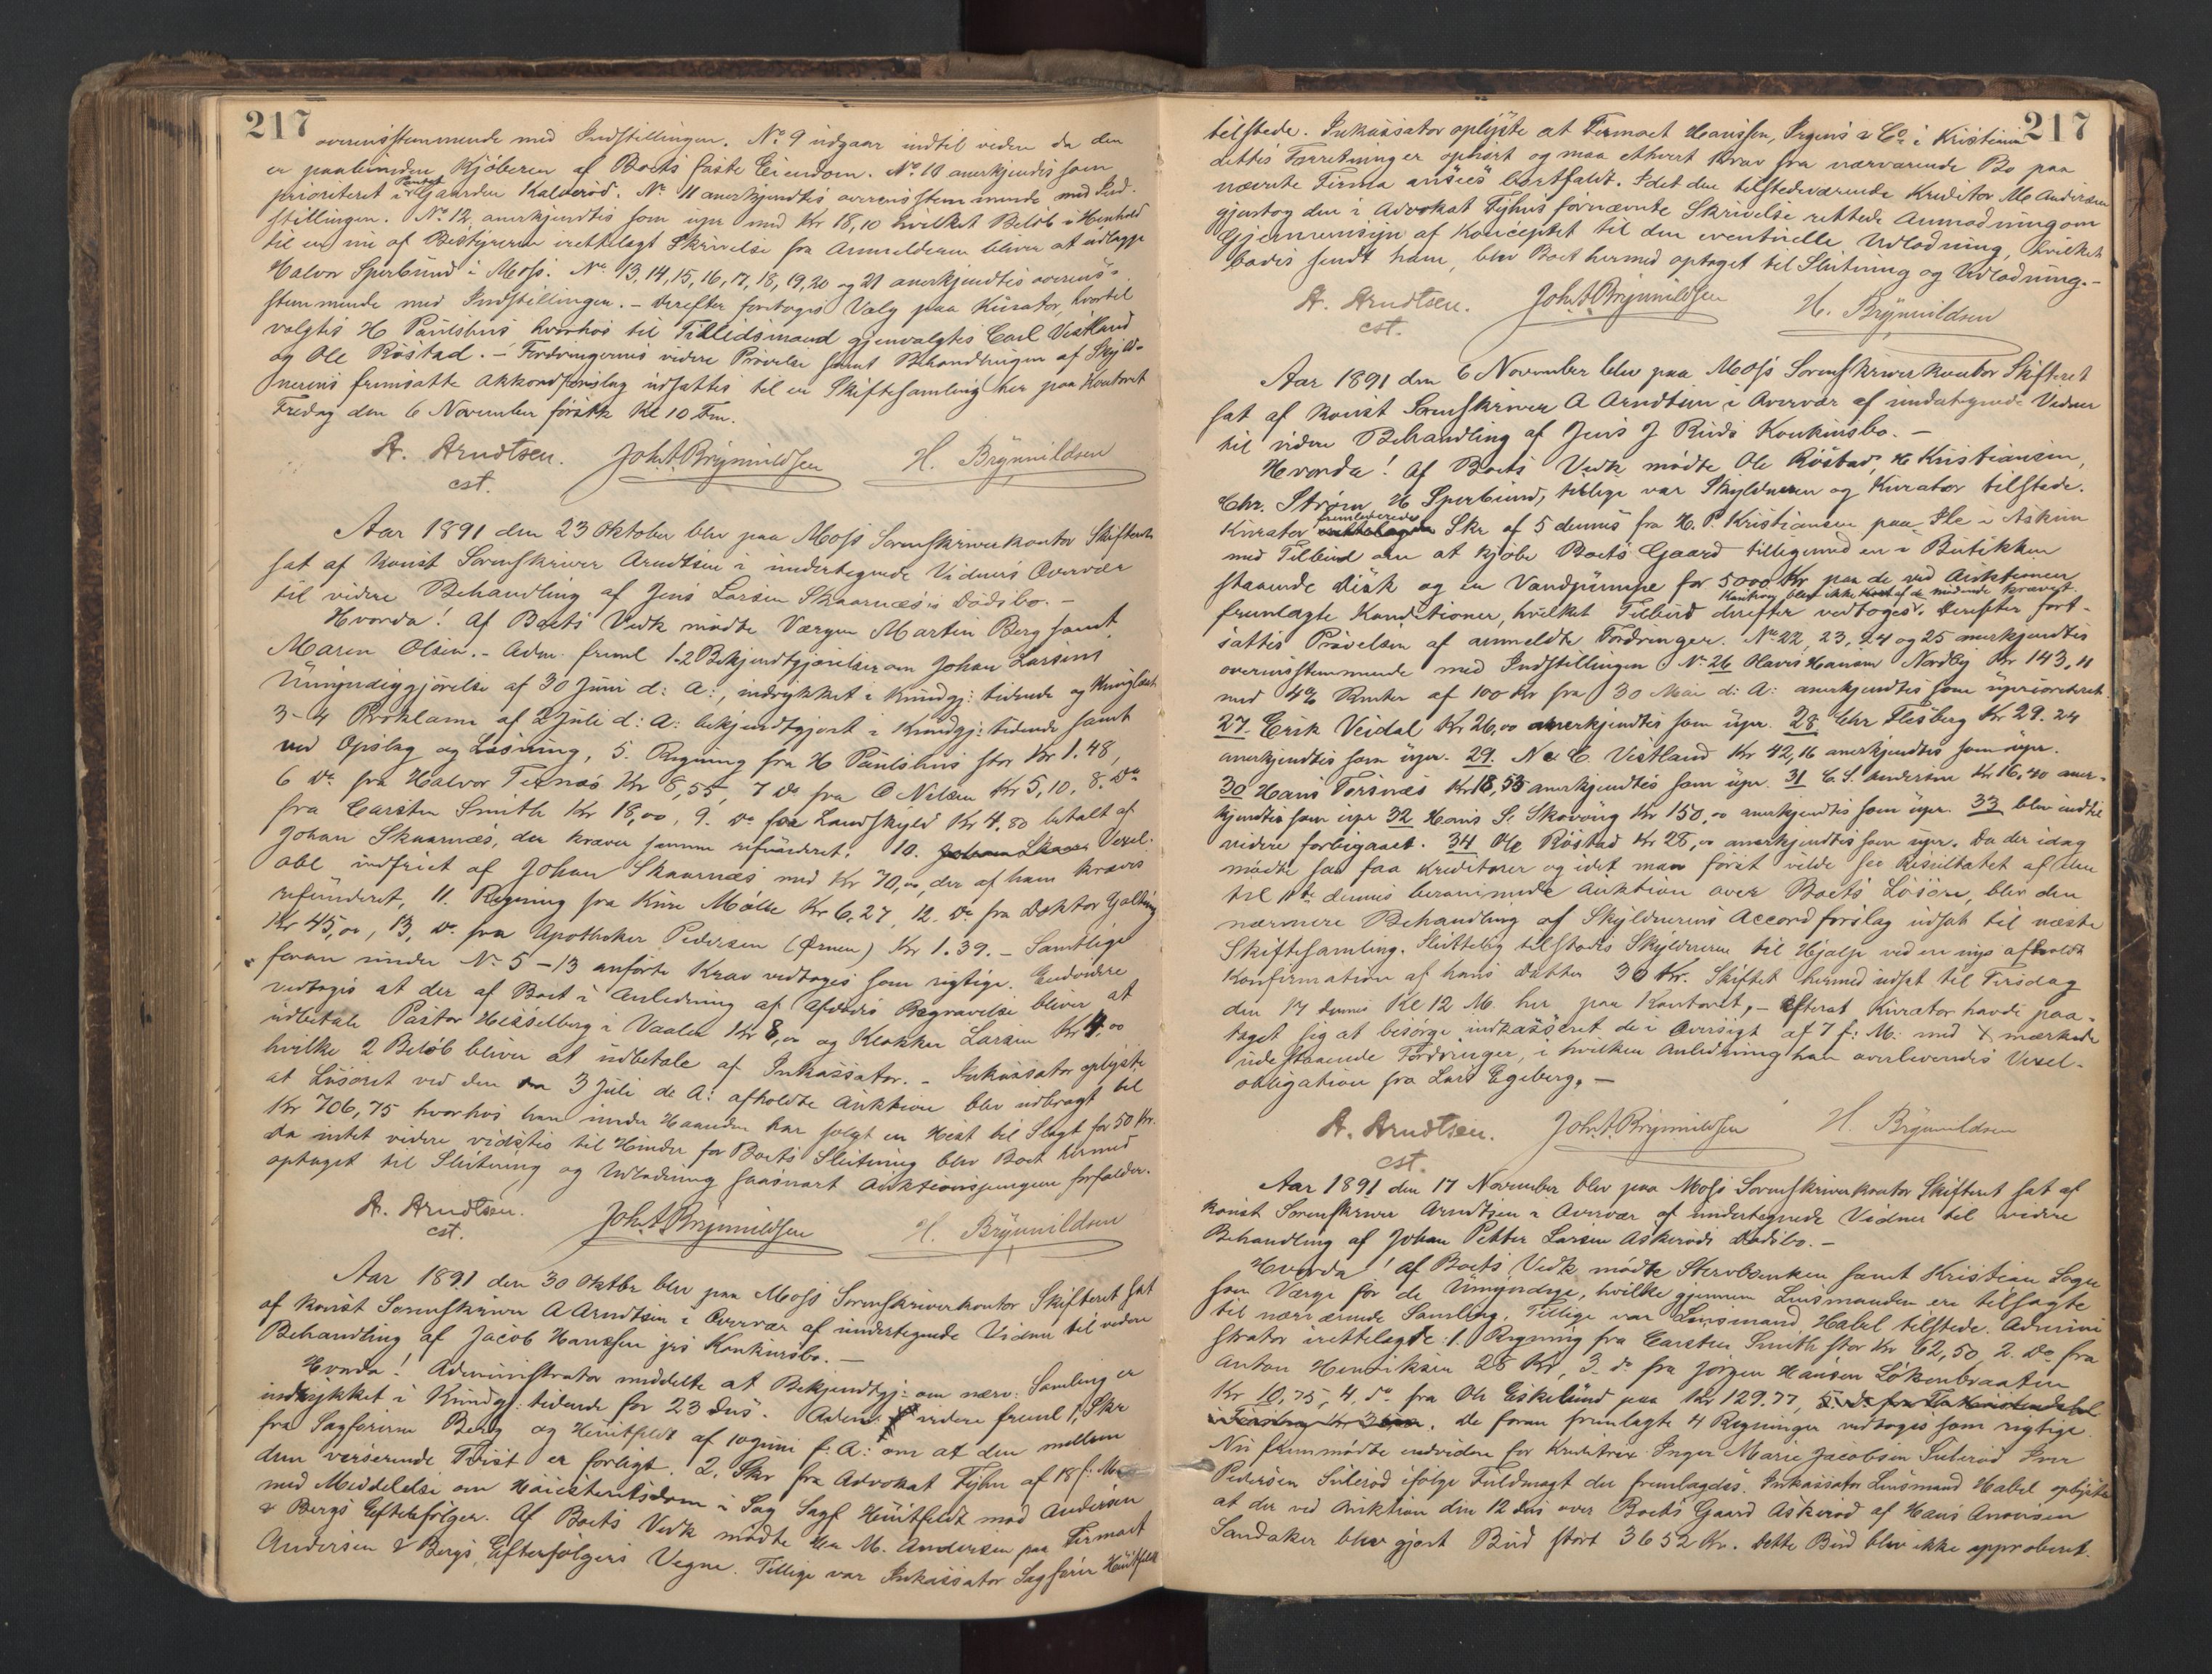 217
overensstemmende med Indstillingen. No 9 udgaar indtil videre da den
er paaheftet Kjøberen af Boets faste Eiendom. No 10 anerkjendtes som
prioriteret i Pantet Gaarden Kalderød. No 11 anerkjendtes overensstemmende med Ind-
stillingen. No 12 anerkjendtes som upr med Kr 18,10 hvilket Beløb i Henhold
til en nu af Bestyreren irettelagt Skrivelse fra Anmelderen bliver at udlægge
Halvor Sperbund i Moss. No 13, 14, 15, 16, 17, 18, 19, 20 og 21 anerkjendtes overens-
stemmende med Indstillingen. – Derefter foretoges Valg paa Kurator, hvortil
valgtes H Paulshus hvorhos til Tillidsmand gjenvalgtes Carl Vestland
og Ole Røstad. – Fordringernes videre Prøvelse samt Behandlingen af Skyld-
nerens fremsatte Akkordforslag udsattes til en Skiftesamling her paa Kontoret
Fredag den 6 November førstk Kl 10 Fm.
A. Arndtsen. Joh A Brynnildsen H. Brynnildsen
cst.
Aar 1891 den 23 Oktober blev paa Moss Sorenskriverkontor Skifteret
sat af Konst Sorenskriver Arndtsen i undertegnede Vidners Overvær
til videre Behandling af Jens Larsen Skaarnæs's Dødsbo. –
Hvorda! Af Boets Vedk mødte Værgen Martin Berg samt
Maren Olsen. – Adm. freml 1-2 Bekjendtgjørelser om Johan Larsens
Umyndiggjørelse af 30 Juni d: A:, indrykket i Kundgj: tidende og
3-4 Proklama af 2 Juli d: A: bekjendtgjort i Kundgj: tidende samt
ved Opslag og Læsning, 5. Regning fra H Paulshus stor Kr 1.48,
6 Do fra Halvor Ternæs Kr 8,55, 7 Do fra O Nilsen Kr 5,10, 8. Do
fra Carsten Smith Kr 18,00, 9. Do for Landskyld Kr 4.80 betalt af
Johan Skaarnæs, der kræver samme refunderet. 10. Johan Skaar Vexel-
obl indfriet af Johan Skaarnæs med Kr 70,00, der af ham kræves
refunderet, 11. Regning fra Kure Mølle Kr 6.27, 12. Do fra Doktor Galtung
Kr 45,00, 13, Do fra Apotheker Pedersen (Ørnen) Kr 1.39. – Samtlige
foran under No 5–13 anførte Krav vedtoges som rigtige. Endvidere
vedtoges at der af Boet i Anledning af Afdødes Begravelse bliver at
udbetale Pastor Hesselberg i Vaaler Kr 8,00 og Klokker Larsen Kr 4.00
hvilke 2 Beløb bliver at udbetale af Inkassator. – Inkassator oplyste
at Løsøret ved den 3 Juli de A: afholdte Auktion blev udbragt til
Kr 706,75 hvorhos han under Haanden har solgt en Hest til Slagt for 50 Kr.
Da intet videre vidstes til Hinder for Boets Slutning blev Boet hermed
optaget til Slutning og Udlodning saasnart Auktionspengene forfalder.
A. Arndtsen. Joh A Brynnildsen H. Brynnildsen
cst.
Aar 1891 den 30 Oktbr blev paa Moss Sorenskriverkontor Skifteret sat
af Konst Sorenskriver A Arndtsen i Overvær af undertegnede Vidner til videre
Behandling af Jacob Hanssen jrs Konkursbo. –
Hvorda! Administrator meddelte at Bekjendtgj: om nærv: Samling er
indrykket i Kundgj: tidende for 23 ds. Adm. videre freml 1, Skr
fra Sagførerne Berg og Heuitfeldt af 10 Juni f: A: om at den mellem
dem verserende Tvist er forligt. 2. Skr fra Advokat Fyhn af 18 f: M:
med Meddelelse om Høiesteretsdom i Sag Sagf. Heuitfeldt mod Andersen
& Bergs Efterfølger. Af Boets Vedk mødte Hr M. Andersen paa Firmaet
Andersen & Bergs Efterfølgers Vegne. Tillige var Inkassator Sagfører Heuitfeldt
217
tilstede. Inkassator oplyste at Firmaet Hanssen, Irgens & Co i Kristiania
dettes Forretning er ophørt og maa ethvert Krav fra nærværende Bo paa
nævnte Firma ansees bortfaldt. Idet den tilstedeværende Kreditor M Andersen
gjentog den i Advokat Fyhns fornævnte Skrivelse rettede Anmodning om
Gjennemsyn af Konceptet til den eventuelle Udlodning, hvilket
bedes sendt ham, blev Boet hermed optaget til Slutning og Udlodning. –
A. Arndtsen. Joh A Brynnildsen H. Brynnildsen
cst.
Aar 1891 den 6 November blev paa Moss Sorenskriverkontor Skifteret
sat af Konst Sorenskriver A Arndtsen i Overvær af undertegnede Vidner
til videre Behandling af Jens J Ruds Konkursbo. –
Hvorda! Af Boets Vedk mødte Ole Røstad, H Kristiansen,
Chr. Strøm, H Sperbund, tillige var Skyldneren og Kurator tilstede.
Kurator fremleverede Skr af 5 dennes fra H. P. Kristiansen paa Ile i Askim
med Tilbud om at kjøbe Boets Gaard tilligemed en i Butikken
staaende Disk og en Vandpumpe for 5000 Kr paa de ved Auktionen
fremlagte Konditioner, hvilket Tilbud derefter vedtoges. Kaution blev ikke af de mødende krævet. Derefter fort-
sattes Prøvelsen af anmeldte Fordringer. No 22, 23, 24 og 25 anerkjendtes
overensstemmende med Indstillingen. No 26 Olavis Hansen Nordby Kr 143,11
med 4% Renter af 100 Kr fra 30 Mai d: A: anerkjendtes som uprioriteret.
27. Erik Veidal Kr 26,00 anerkjendtes som upr. 28 Chr Flesberg Kr 29.24
anerkjendtes som upr. 29. N & C. Vestland Kr 42,16 anerkjendtes som upr.
30 Hans Torsnæs Kr 18,55 anerkjendtes som upr. 31 C S. Andersen Kr 16,40 aner-
kjendtes som upr 32 Hans S. Skovøug Kr 150,00 anerkjendtes som upr. 33 blev indtil
videre forbigaaet. 34 Ole Røstad Kr 28,00 anerkjendtes som upr. Da der idag
mødte saa faa Kreditorer og idet man først vilde see Resultatet af den
til 11te dennes berammede Auktion over Boets Løsøre, blev den
nærmere Behandling af Skyldnerens Accordforslag udsat til næste
Skiftesamling. Sluttelig tilstodes Skyldneren til Hjælp ved en nys afholdt
Konfirmation af hans Datter 30 Kr. Skiftet hermed udsat til Tirsdag
den 17 dennes Kl 12 M. her paa Kontoret, – efterat Kurator havde paa-
taget sig at besørge indkasseret de i Oversigt af 7 f: M: med X mærkede
udestaaende Fordringer, i hvilken Anledning ham overleveredes Vexel-
obligation fra Lars Egeberg. –
A. Arndtsen. Joh A Brynnildsen H. Brynnildsen
cst.
Aar 1891 den 17 November blev paa Moss Sorenskriverkontor Skifteret sat af
Konst Sorenskriver Arndtsen i Overvær af undertegnede Vidner til videre
Behandling af Johan Petter Larsen Askerøds Dødsbo. –
Hvorda! Af Boets Vedk mødte Stervboenken samt Kristian Sogn
som Værge for de Umyndige, hvilke gjennem Lensmanden ere tilsagte
til nærværende Samling. Tillige var Lensmand Habel tilstede. Admini
strator irettelagde: 1. Regning fra Carsten Smith stor Kr 62,50, 2. Do fra
Anton Henriksen 28 Kr, 3 do fra Jørgen Hansen Løkenbraaten
Kr 10,75, 4. do fra Ole Eskelund paa Kr 129.77,
De foran fremlagte 4 Regninger vedtoges som rigtige.
Nu fremmødte endvidere for Kreditrix Inger Marie Jacobsen Sulerød Iver
Pedersen Sulerød ifølge Fuldmagt der fremlagdes. Inkassator Lensmand Habel oplyste
at der ved Auktion den 12 ds over Boets Gaard Askerød af Hans Anersen
Sandaker blev gjort Bud stort 3652 Kr. Dette Bud blev ikke approberet.